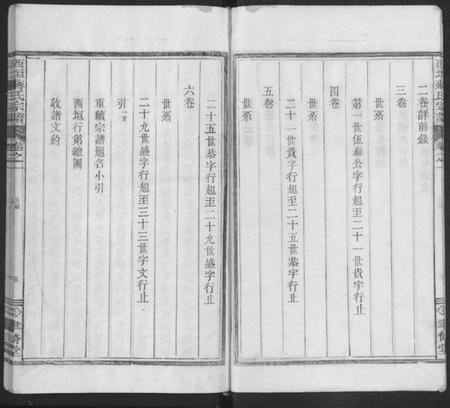 二卷詳前錄
三卷
世系
第一世伍奉公字行起至二十一世貴字行止
四卷
世系
二十一世貴字行起至二十五世恭字行止
五卷
世系
二十五世恭字行起至二十九世盛字行止
六卷
世系
二十九世盛字行起至三十三世字文行止
引言
重續宗譜題名小引
酉垣行第總圖
收譜文約
酉垣蔣氏宗譜
卷之一